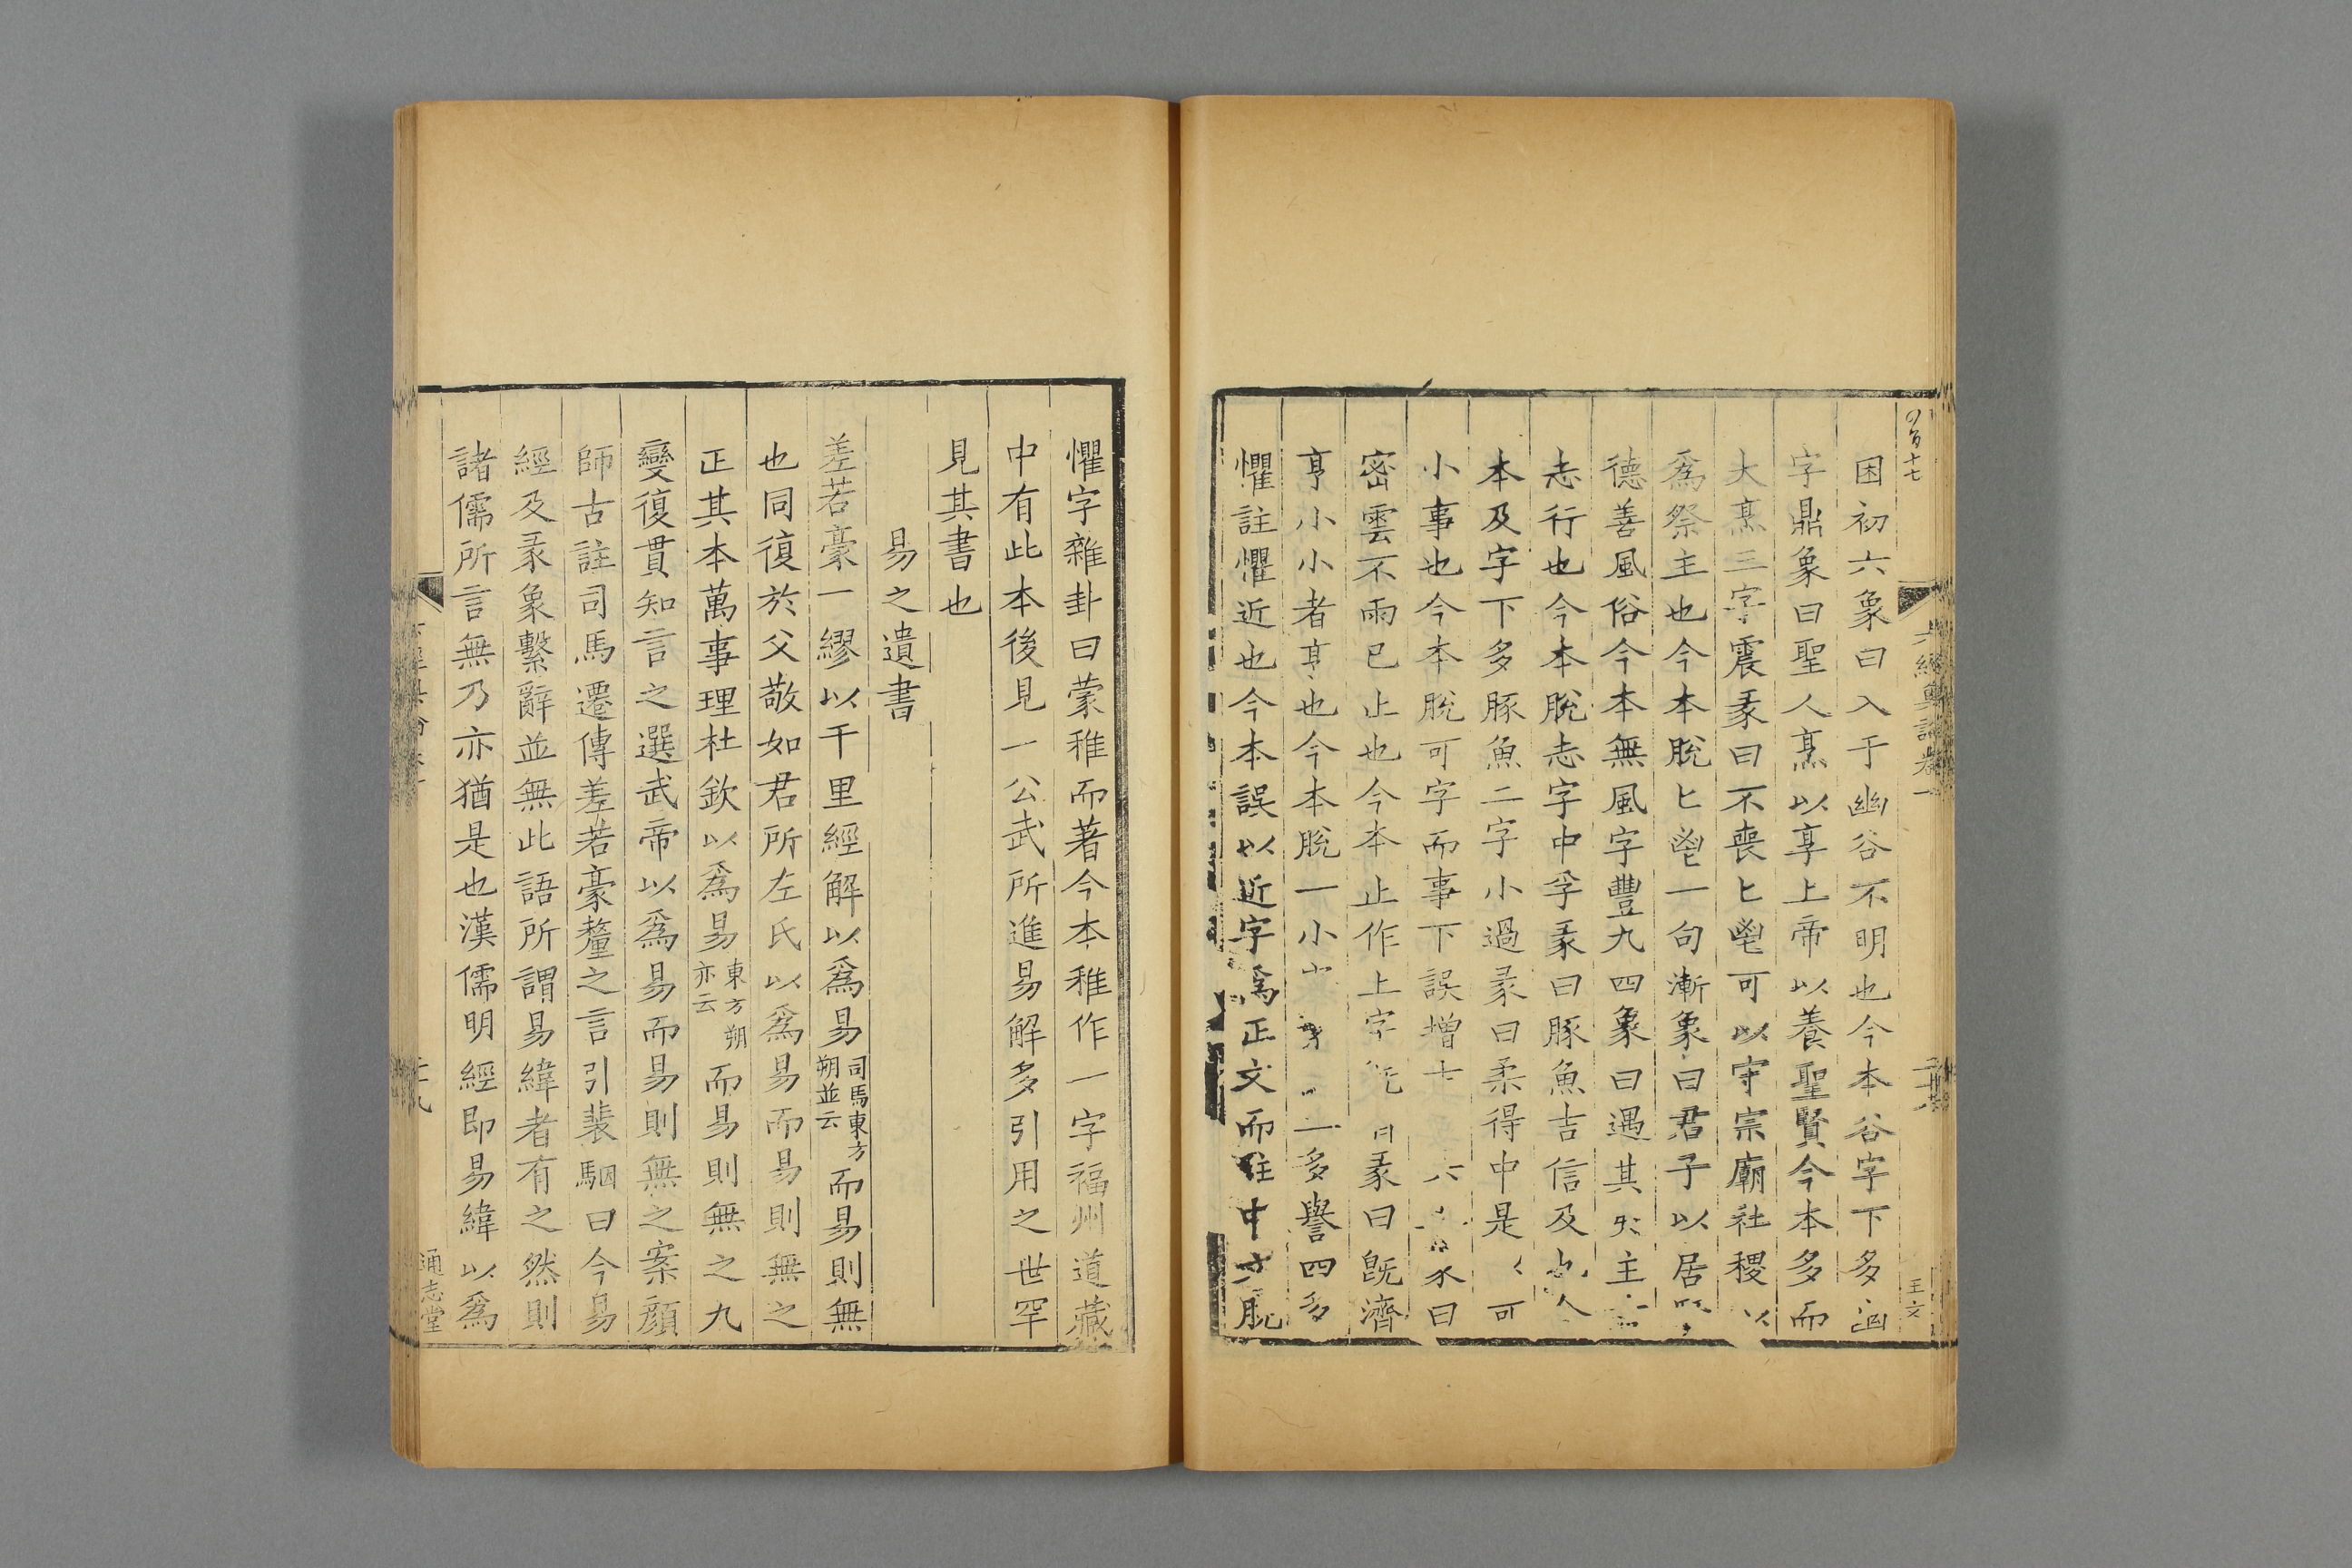 困初六象曰入于幽谷不明也今本谷字下多幽
字鼎象曰聖人烹以享上帝以養聖賢今本多而
大烹三字震彖曰不喪匕鬯可以守宗廟社稷以
爲祭主也今本脫匕鬯一句漸象曰君子以居
德善風俗今本無風字豐九四象曰遇其夷主
志行也今本脫志字中孚彖曰豚魚吉信及也
本及字下多豚魚二字小過彖曰柔得中是可
小事也今本脫可字而事下誤增吉 六 曰
密雲不雨已止也今本止作上字 彖曰既濟
亨小小者亨也今本脫一小 二多譽四多
懼註懼近也今本誤以近字爲正文而註中 脫
六經奧論卷一
王文
懼字雜卦曰蒙稚而著今本稚作一字福州道藏
中有此本後見一公武所進易解多引用之世罕
見其書也
易之遺書
差若豪一繆以千里經解以爲易司馬東方朔並云而易則無
也同復於父敬如君所左氏以爲易而易則無之
正其本萬事理杜欽以爲易東方朔亦云而易則無之九
變復貫知言之選武帝以爲易而易則無之案顔
師古註司馬遷傳差若豪釐之言引裴駰曰今易
經及彖象繫辭並無此語所謂易緯者有之然則
諸儒所言無乃亦猶是也漢儒明經即易緯以爲
通志堂